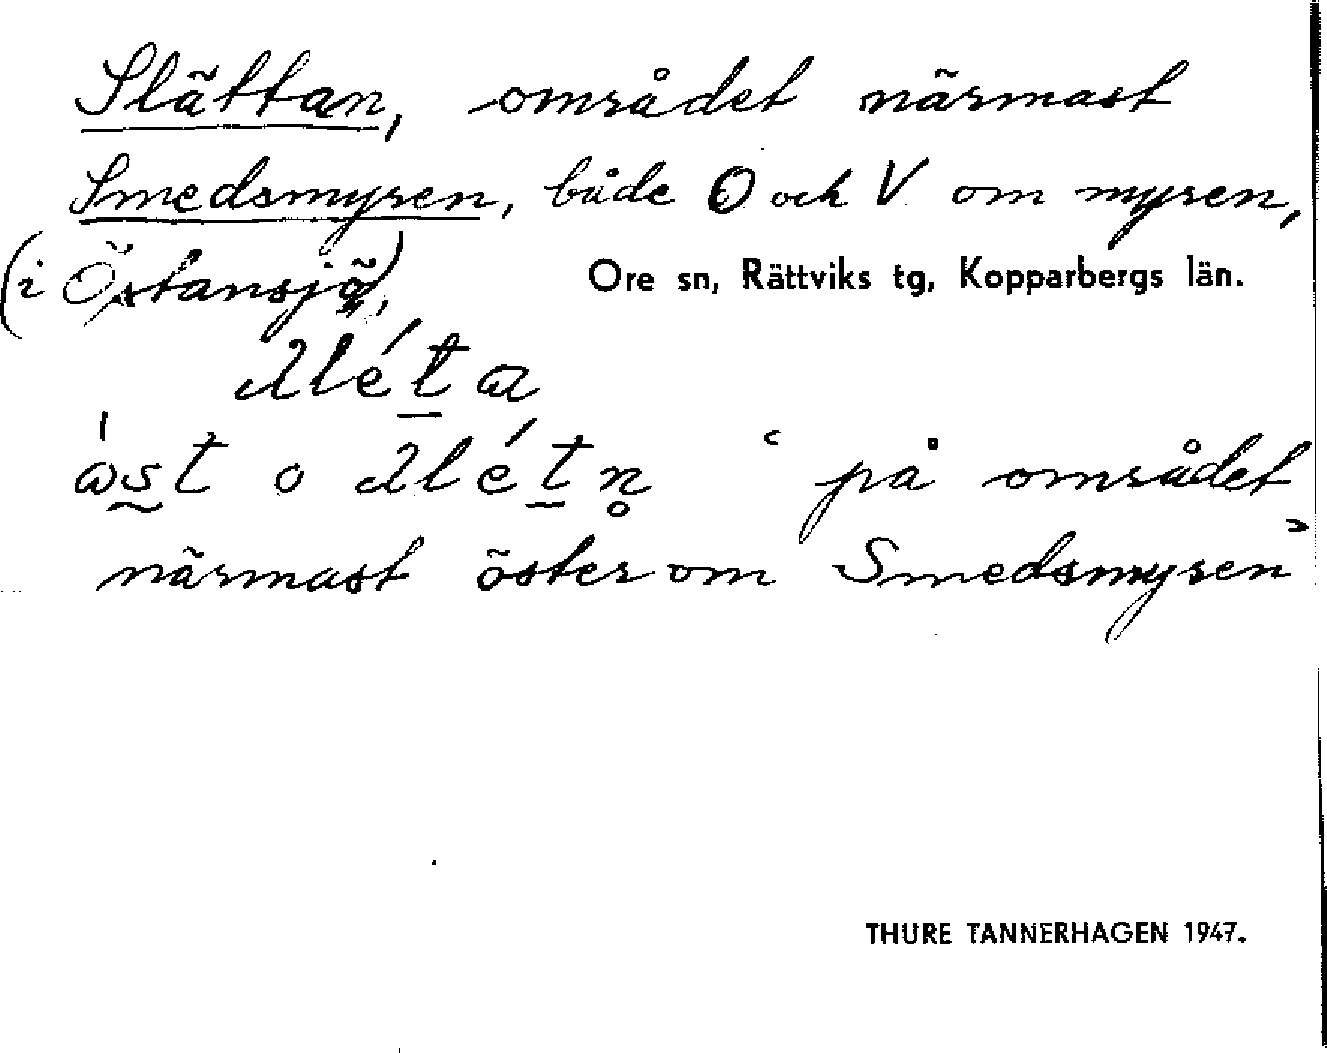 Slättan, området närmast
Smedsmyren, både O och V om myren,
(i Östansjö),
Ore sn, Rättviks tg, Kopparbergs län.
“på området
närmast öster om Smedsmyren”
THURE TANNERHAGEN 1947.